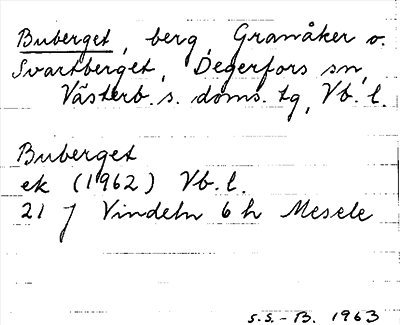 Buberget, berg, Granåker o.
Svartberget, Degerfors sn,
Västerb. s. doms. tg, Vb. l.
Buberget
ek (1962) Vb. l.
21 J Vindeln 6 h Mesele
S.S.-B. 1963